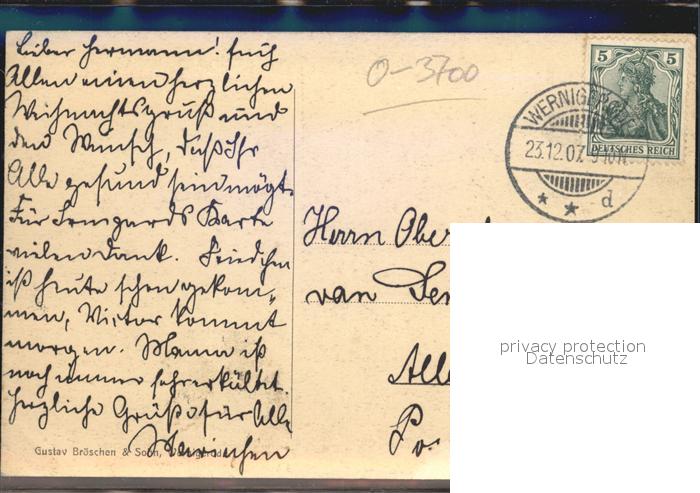 Lieber Hermann! Euch
Allen einen herzlichen
Weihnachtsgruß und
den Wunsch, daß Ihr
Alle gesund sein mögt.
Für Irmgards Karte
vielen Dank. Friedchen
ist heute schon gekom-
men, Victor kommt
morgen. Mama ist
noch immer sehr erkältet.
Herzliche Grüße für Alle
Gustav Bröschen & Sohn, Wernigerode
O-3700
WERNIGERODE
23.12.07.
* * d
5 5
DEUTSCHES REICH
Herrn Ober
van
Alle
privacy protection
Datenschutz